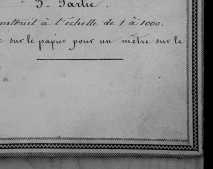 3e. Partie.
construit à l'échelle de 1 à 1000.
sur le papier pour un mètre sur le